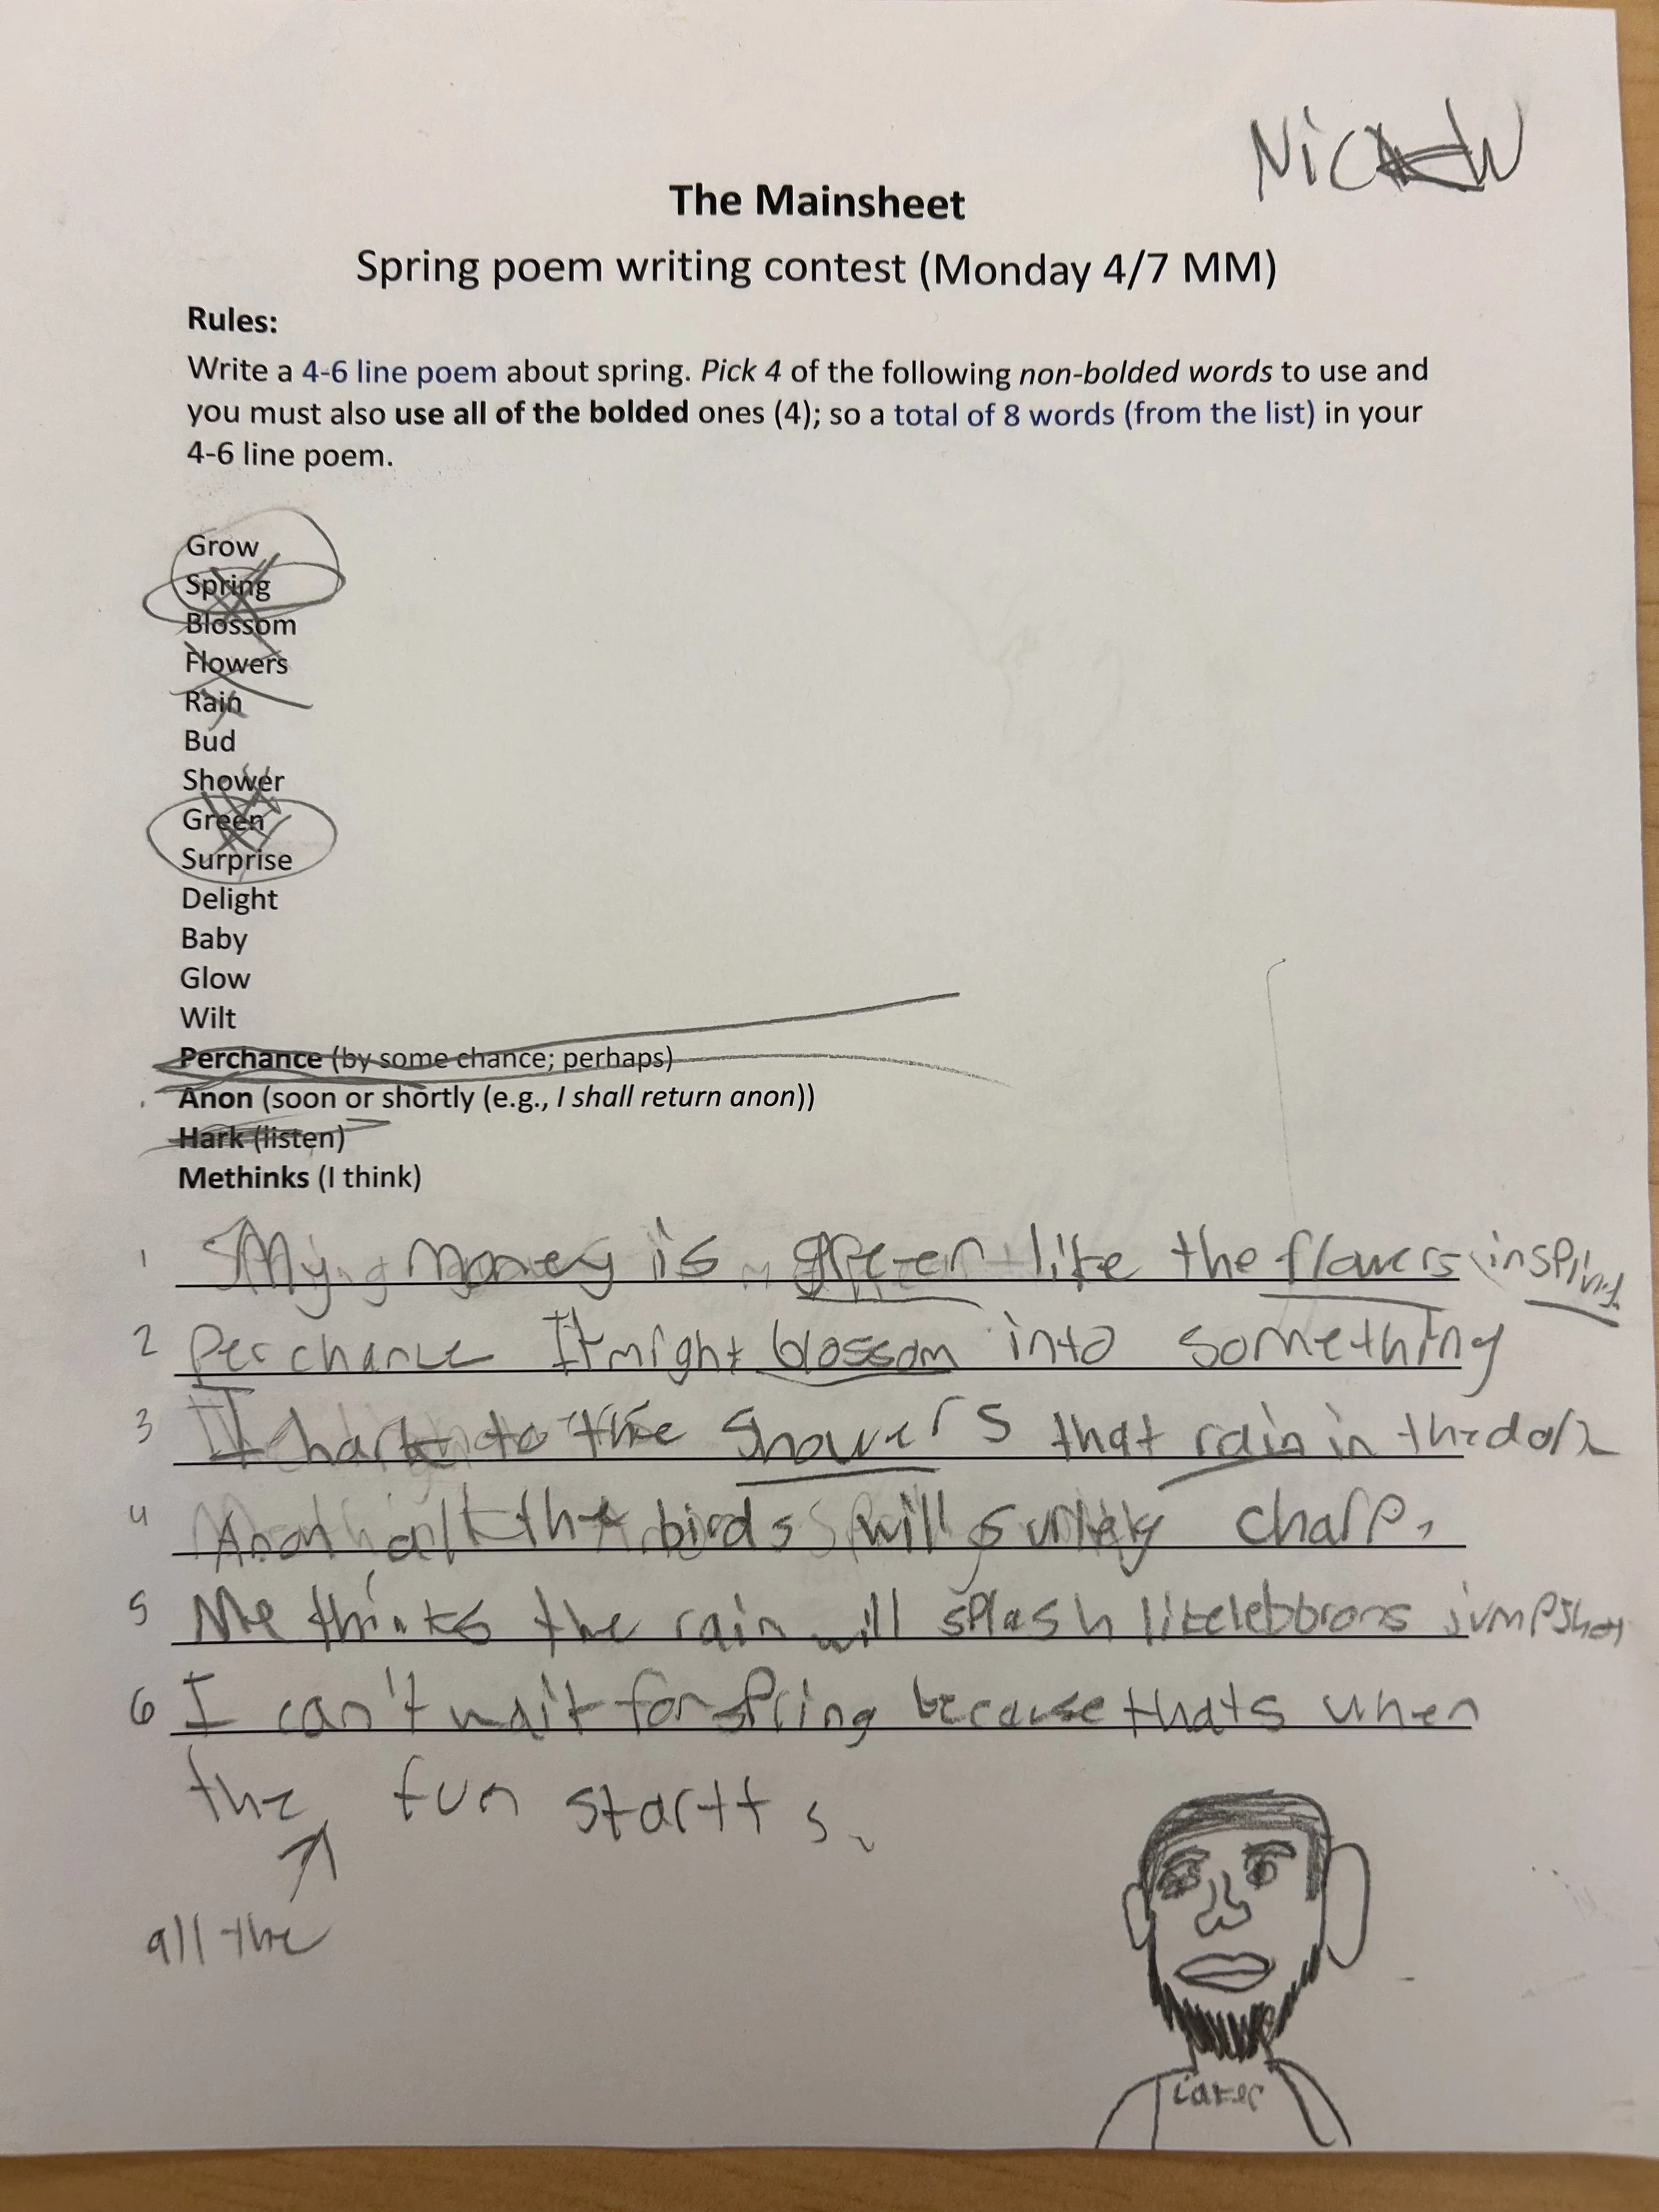 Nick W
The Mainsheet
Spring poem writing contest (Monday 4/7 MM)
Rules:
Write a 4-6 line poem about spring. Pick 4 of the following non-bolded words to use and
you must also use all of the bolded ones (4); so a total of 8 words (from the list) in your
4-6 line poem.
Grow
Spring
Blossom
Flowers
Rain
Bud
Shower
Green
Surprise
Delight
Baby
Glow
Wilt
Perchance (by some chance; perhaps)
Anon (soon or shortly (e.g., I shall return anon))
Hark (listen)
Methinks (I think)
1 My money is green like the flowers in spring
2 Perchance It might blossom into something
3 I hark to the showers that rain in the dark
4 Anon all the birds will surely charp.
5 Me thinks the rain will splash like lebbrons jumpshot
6 I can't wait for spring because thats when
the fun startts.
all the